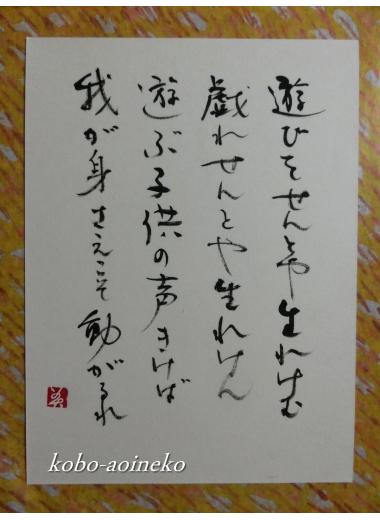 遊びをせんとや生れけむ
戯れせんとや生れけん
遊ぶ子供の声きけば
我が身さえこそ動がるれ
kobo-aoineko